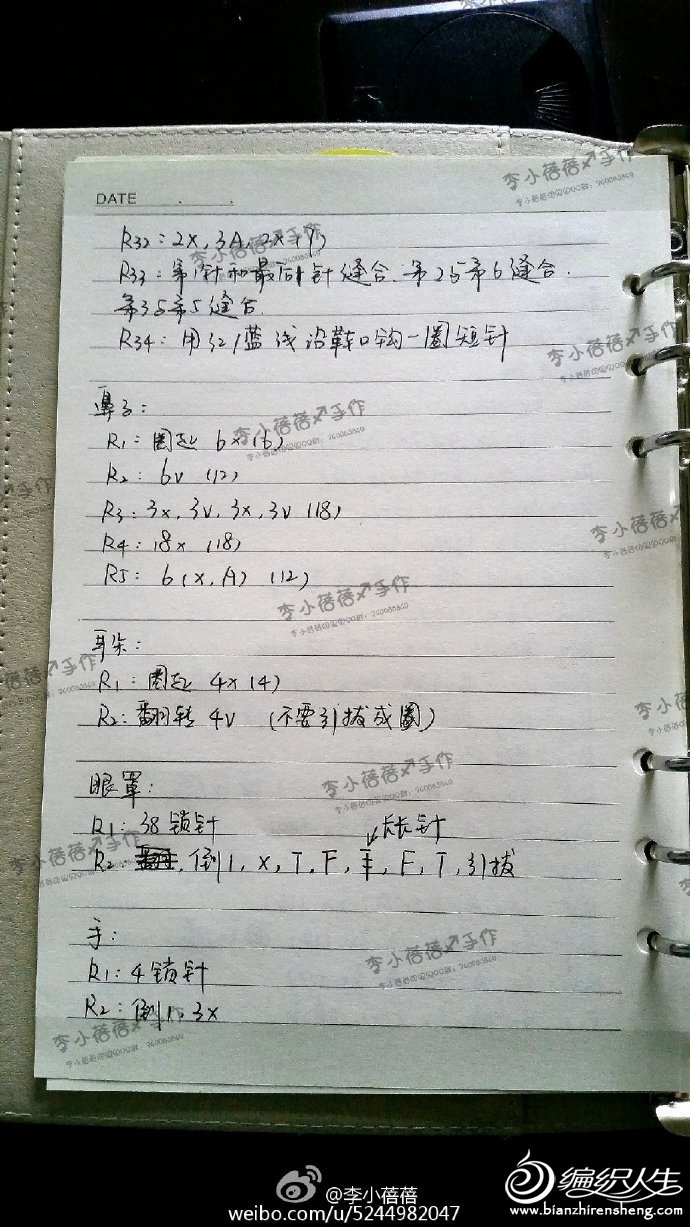 DATE
R32: 2X, 3A, 2X (7)
R33: 第1针和最后1针缝合. 第2与第6缝合.
第3与第5缝合.
R34: 用红/蓝线沿鞋口钩一圈短针
鼻子:
R1: 圈起 6X (6)
R2: 6V (12)
R3: 3X, 3V, 3X, 3V (18)
R4: 18X (18)
R5: 6(X, A) (12)
耳朵:
R1: 圈起 4X (4)
R2: 翻转 4V (不要引拔成圈)
眼罩:
R1: 38锁针
↙长长针
R2 , 倒1, X, T, F, , F, T, 引拔
手:
R1: 4锁针
R2: 倒1, 3X
李小蓓蓓手作
@李小蓓蓓
weibo.com/u/5244982047
编织人生
www.bianzhirensheng.com